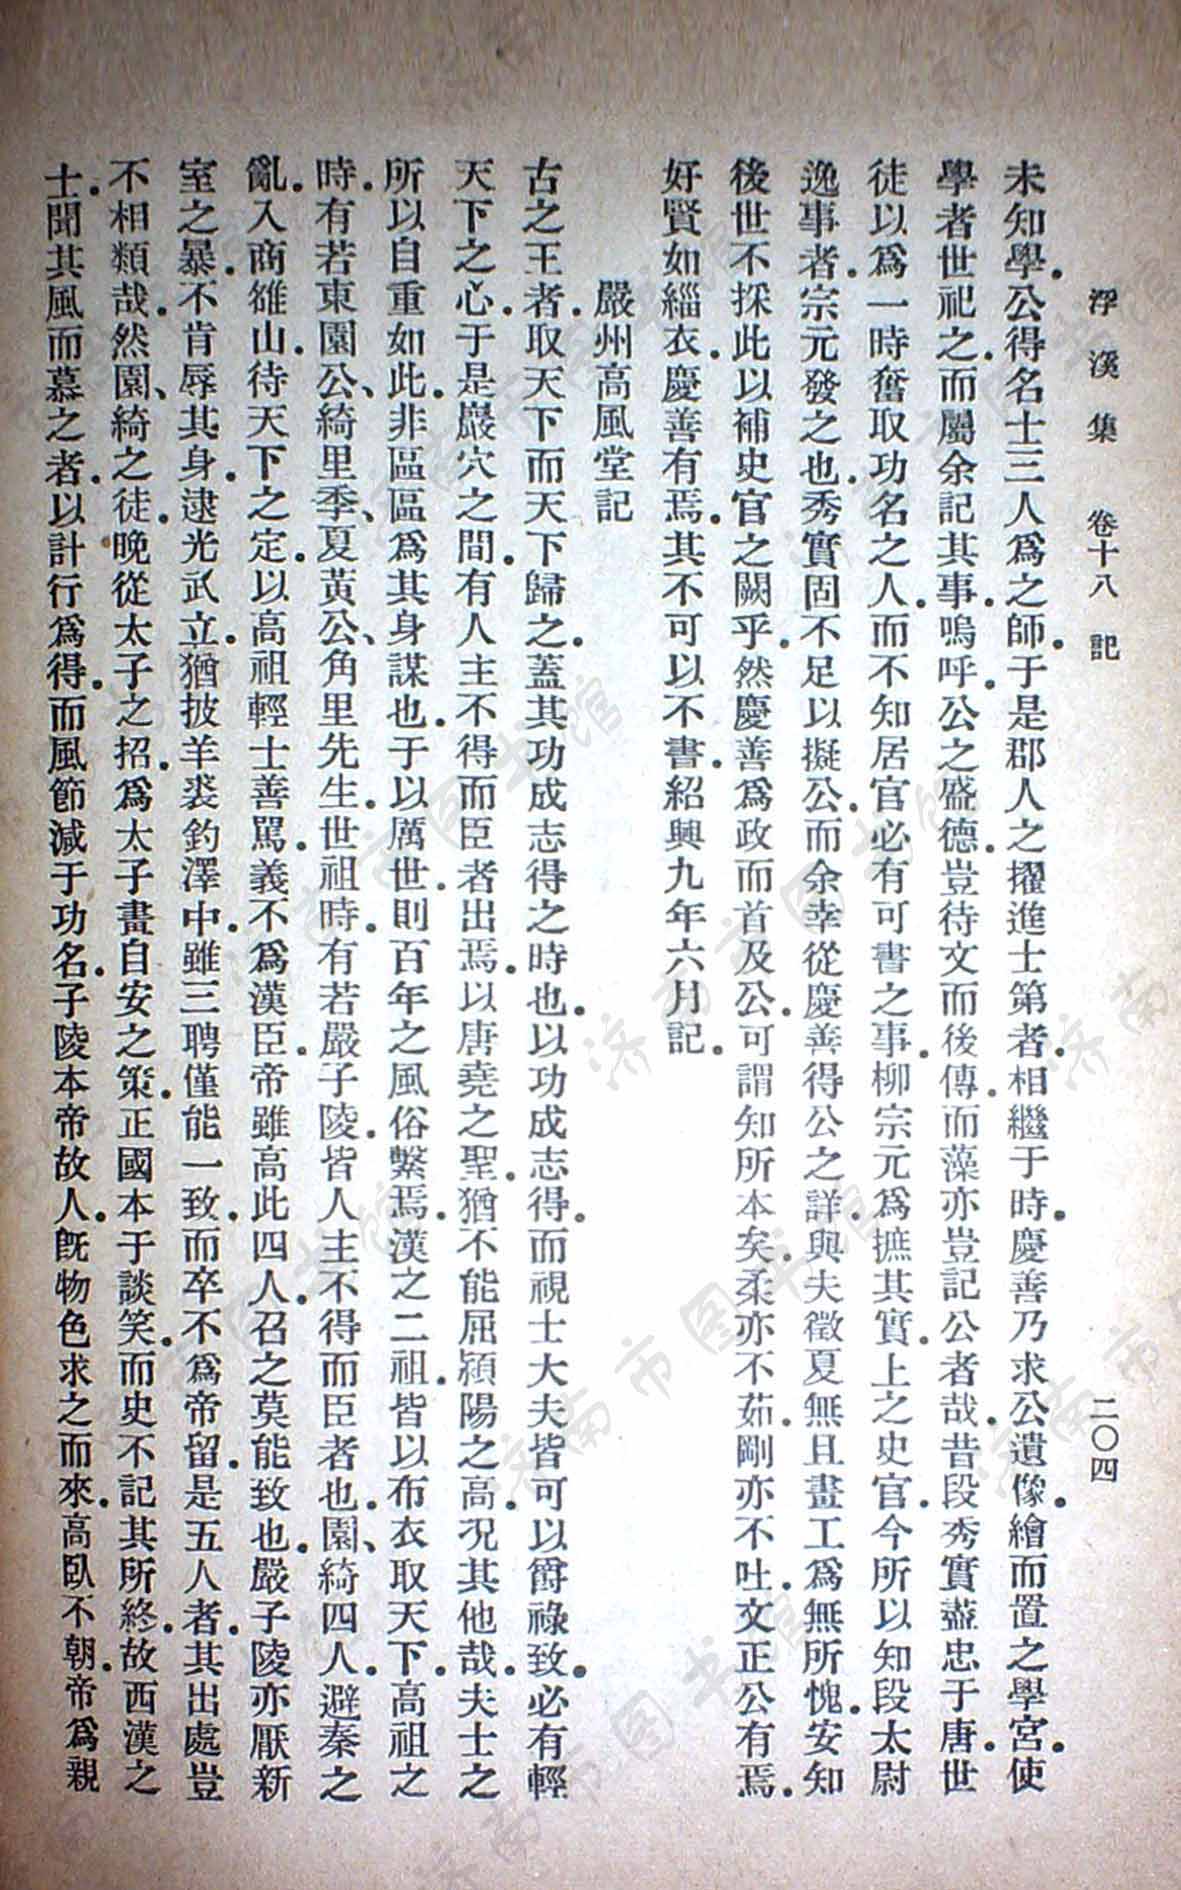 浮溪集 卷十八 記 二〇四
未知學。公得名士三人爲之師。于是郡人之擢進士第者。相繼于時。慶善乃求公遺像。繪而置之學宮。使
學者世祀之。而屬余記其事。嗚呼。公之盛德。豈待文而後傳。而藻亦豈記公者哉。昔段秀實藎忠于唐。世
徒以爲一時奮取功名之人。而不知居官必有可書之事。柳宗元爲摭其實。上之史官。今所以知段太尉
逸事者。宗元發之也。秀實固不足以擬公。而余幸從慶善得公之詳。與夫徵夏無且畫工爲無所愧。安知
後世不採此以補史官之闕乎。然慶善爲政而首及公。可謂知所本矣。柔亦不茹。剛亦不吐。文正公有焉。
好賢如緇衣。慶善有焉。其不可以不書。紹興九年六月記。
嚴州高風堂記
古之王者。取天下而天下歸之。蓋其功成志得之時也。以功成志得。而視士大夫皆可以爵祿致。必有輕
天下之心。于是巖穴之間。有人主不得而臣者出焉。以唐堯之聖。猶不能屈潁陽之高。況其他哉。夫士之
所以自重如此。非區區爲其身謀也。于以厲世。則百年之風俗繫焉。漢之二祖。皆以布衣取天下。高祖之
時。有若東園公、綺里季、夏黃公、角里先生。世祖時。有若嚴子陵。皆人主不得而臣者也。園、綺四人。避秦之
亂。入商雒山。待天下之定。以高祖輕士善罵。義不爲漢臣。帝雖高此四人。召之莫能致也。嚴子陵亦厭新
室之暴。不肯辱其身。逮光武立。猶披羊裘釣澤中。雖三聘僅能一致。而卒不爲帝留。是五人者。其出處豈
不相類哉。然園、綺之徒。晚從太子之招。爲太子畫自安之策。正國本于談笑。而史不記其所終。故西漢之
士。聞其風而慕之者。以計行爲得。而風節減于功名。子陵本帝故人。旣物色求之而來。高臥不朝。帝爲親